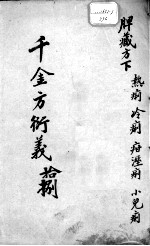 脾藏方下
熱痢 冷痢 疳溼痢 小兒痢
千金方衍義 拾捌